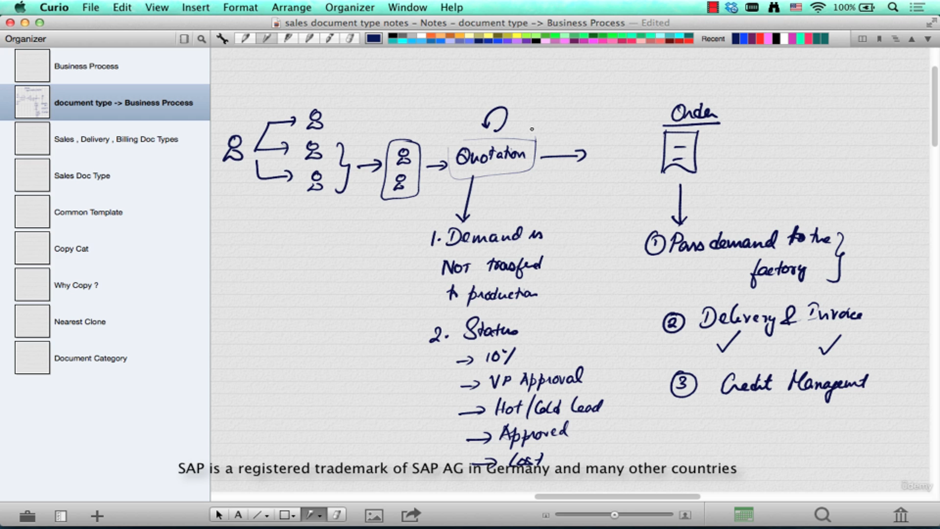 Curio File Edit View Insert Format Arrange Organizer Window Help 100%
sales document type notes - Notes - document type -> Business Process — Edited
Organizer
Recent
Business Process
document type -> Business Process
Sales , Delivery , Billing Doc Types
Sales Doc Type
Common Template
Copy Cat
Why Copy ?
Nearest Clone
Document Category
Quotation
1. Demand is
NOT trasfed
to production
2. Status
→ 10%
→ VP Approval
→ Hot/Cold Lead
→ Approved
→ Lost
Order
① Pass demand to the
factory
② Delivery & Invoice
③ Credit Managemt
SAP is a registered trademark of SAP AG in Germany and many other countries
A
Udemy